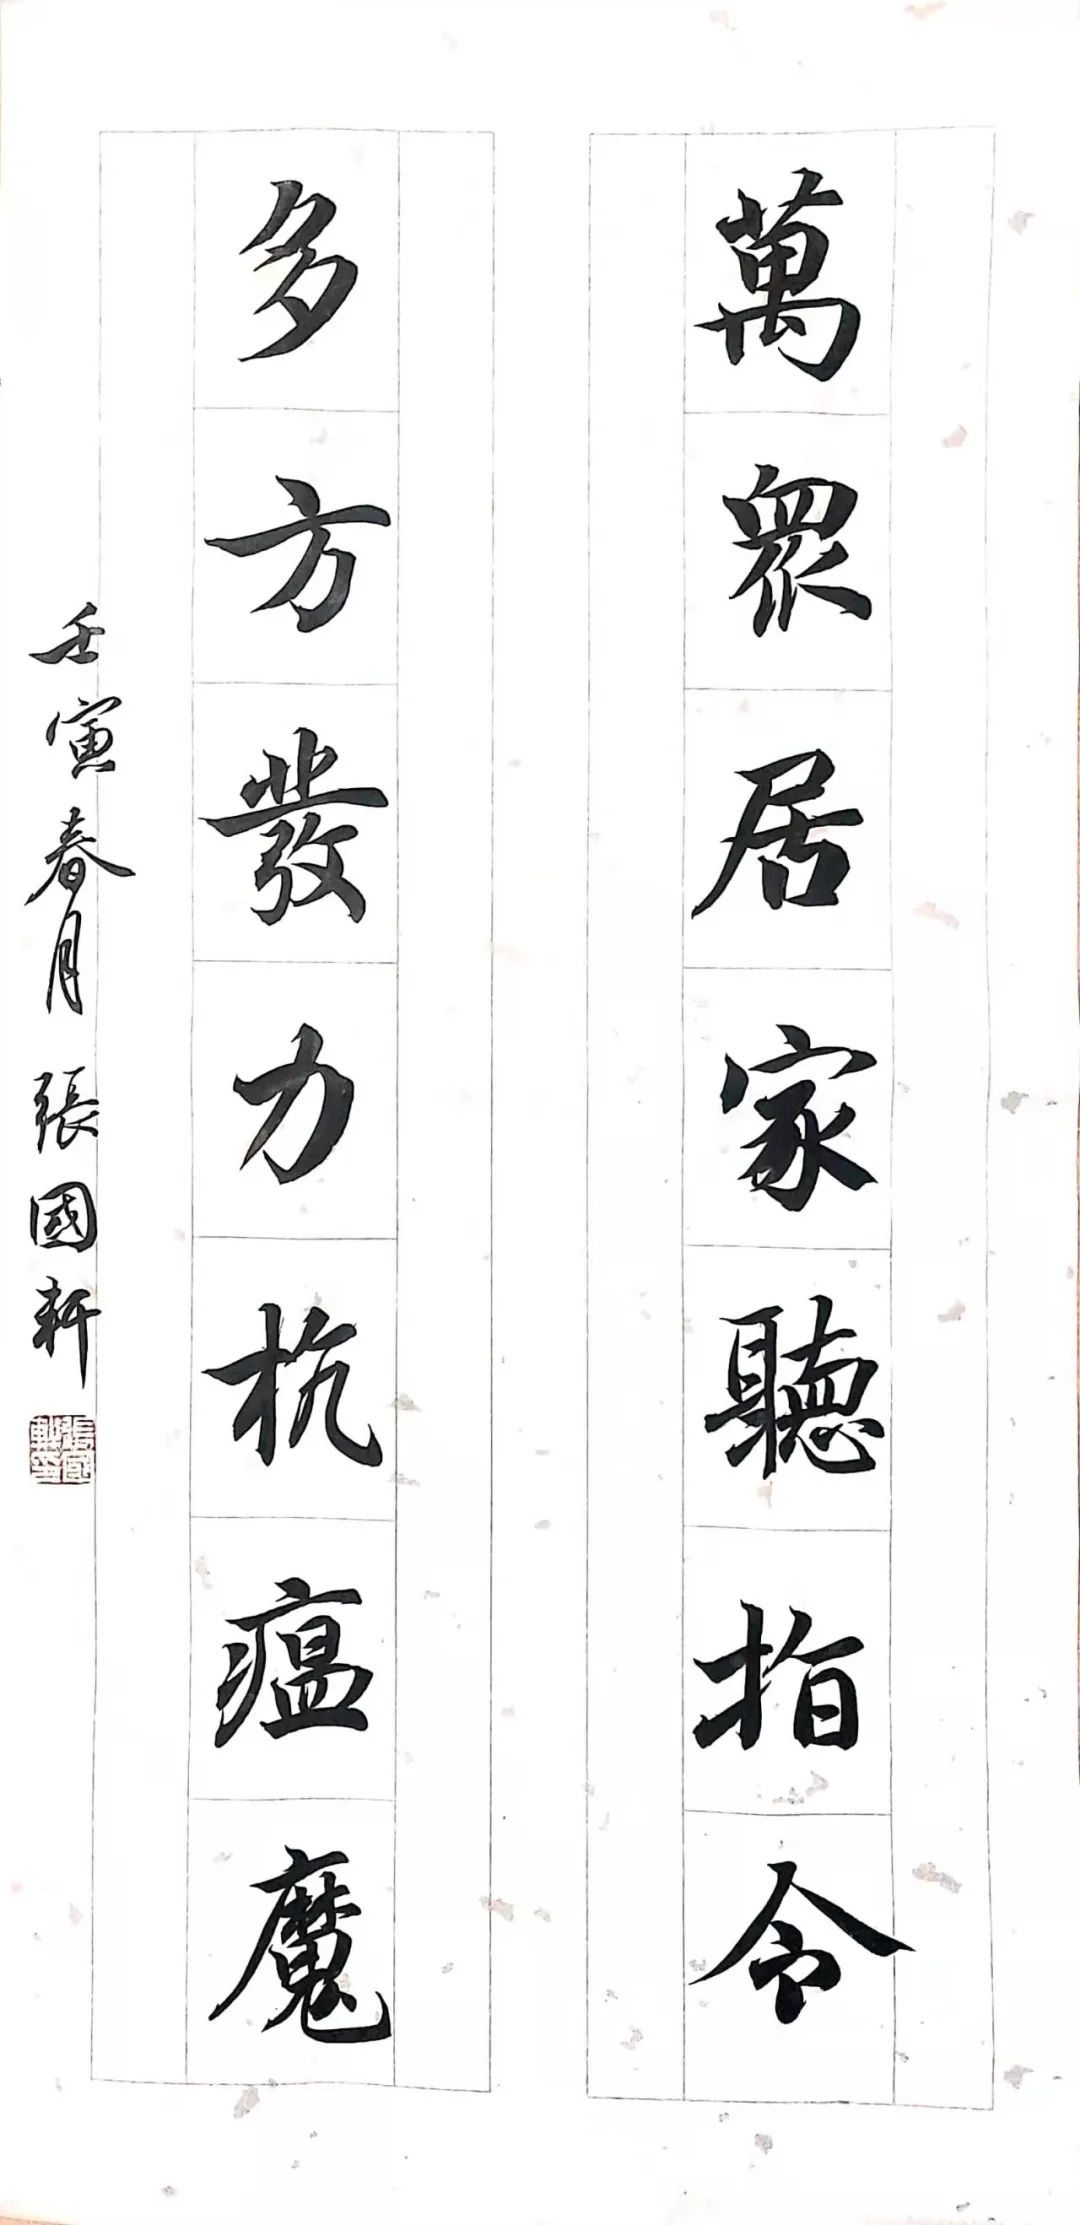 萬眾居家聽指令
多方發力抗瘟魔
壬寅春月張國軒
張國軒印